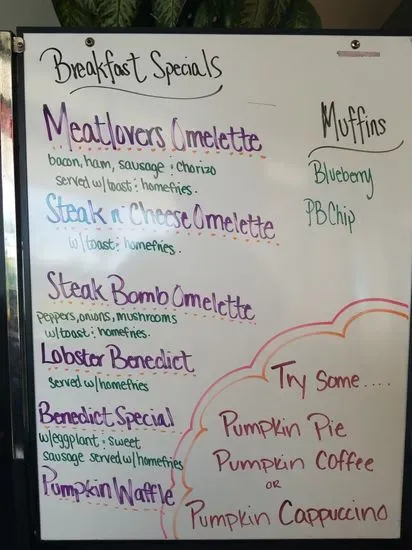 Breakfast Specials
Meatlovers Omelette
bacon, ham, sausage & chorizo
served w/toast & homefries.
Steak n' Cheese Omelette
w/toast & homefries.
Steak Bomb Omelette
peppers, onions, mushrooms
w/toast & homefries.
Lobster Benedict
served w/homefries
Benedict Special
w/eggplant & sweet
sausage served w/homefries
Pumpkin Waffle
Muffins
Blueberry
PB Chip
Try Some....
Pumpkin Pie
Pumpkin Coffee
OR
Pumpkin Cappuccino